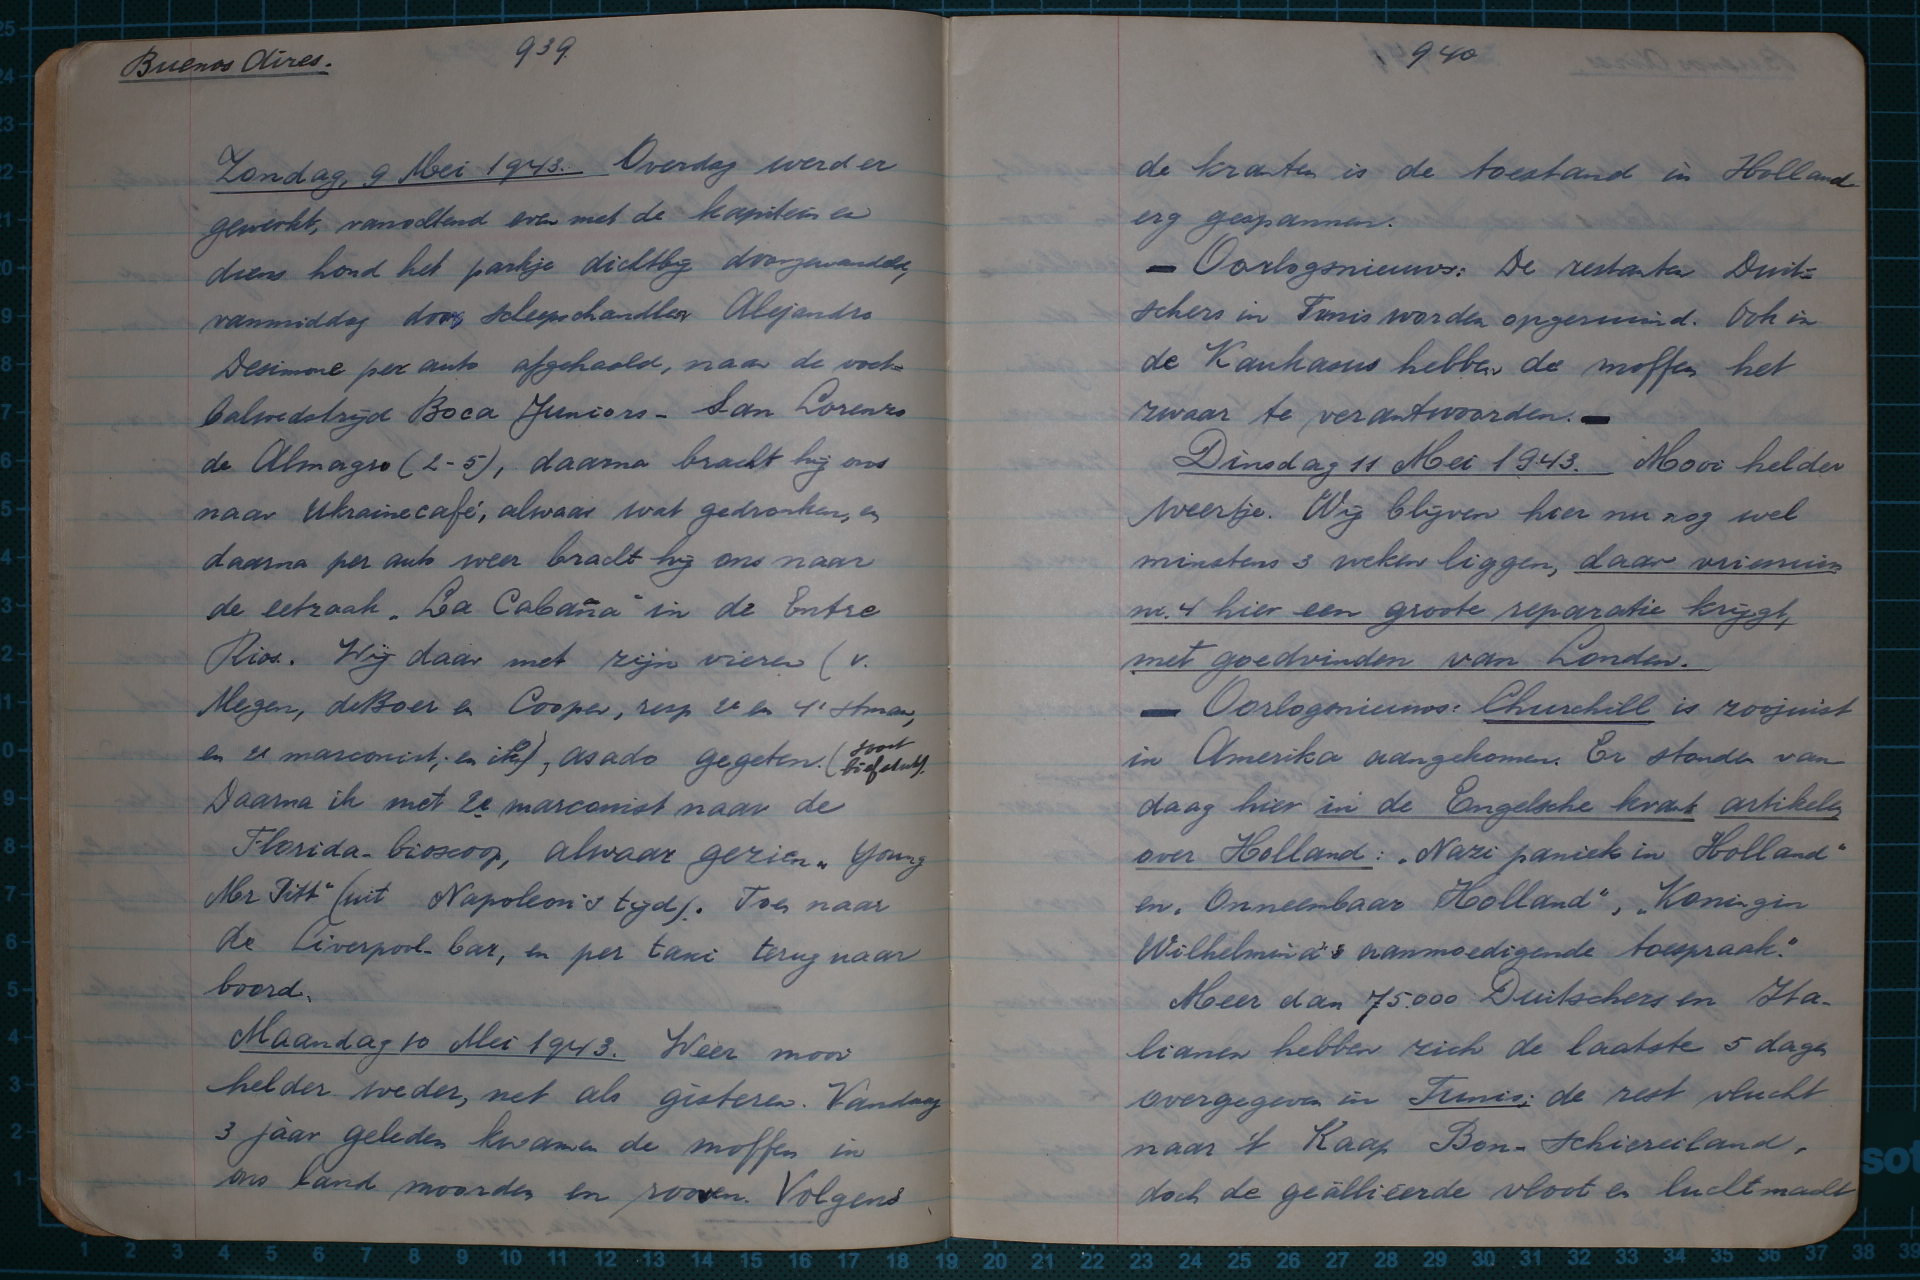 Buenos Aires.
939.
Zondag, 9 Mei 1943. Overdag werd er
gewerkt, vanochtend even met de kapitein en
diens hond het parkje dichtbij doorgewandeld,
vanmiddag door scheepschandler Alejandro
Desimone per auto afgehaald, naar de voet=
balwedstrijd Boca Juniors - San Lorenzo
de Almagro (2-5), daarna bracht hij ons
naar Ukrainecafé, alwaar wat gedronken, en
daarna per auto weer bracht hij ons naar
de eetzaak „La Cabaña" in de Entre
Rios. Wij daar met zijn vieren (v.
Megen, de Boer en Cooper, resp 2e en 4e stman,
en 2e marconist, en ik), asado gegeten. (soort
biefstuk).
Daarna ik met 2e marconist naar de
Florida-bioscoop, alwaar gezien „Young
Mr Pitt" (uit Napoleon's tijd). Toen naar
de Liverpool-bar, en per taxi terug naar
boord.
Maandag 10 Mei 1943. Weer mooi
helder weder, net als gisteren. Vandaag
3 jaar geleden kwamen de moffen in
ons land moorden en rooven. Volgens
940
de kranten is de toestand in Holland
erg gespannen.
— Oorlogsnieuws: De restanten Duit=
schers in Tunis worden opgeruimd. Ook in
de Kaukasus hebben de moffen het
zwaar te verantwoorden. —
Dinsdag 11 Mei 1943. Mooi helder
weertje. Wij blijven hier nu nog wel
minstens 3 weken liggen, daar vriesruim
nr. 4 hier een groote reparatie krijgt,
met goedvinden van Londen.
— Oorlogsnieuws: Churchill is zoojuist
in Amerika aangekomen. Er stonden van
daag hier in de Engelsche krant artikelen
over Holland: „Nazi paniek in Holland"
en „Onneembaar Holland", „Koningin
Wilhelmina's aanmoedigende toespraak."
Meer dan 75.000 Duitschers en Ita-
lianen hebben zich de laatste 5 dagen
overgegeven in Tunis; de rest vlucht
naar 't Kaap Bon-schiereiland,
doch de geällieerde vloot en luchtmacht